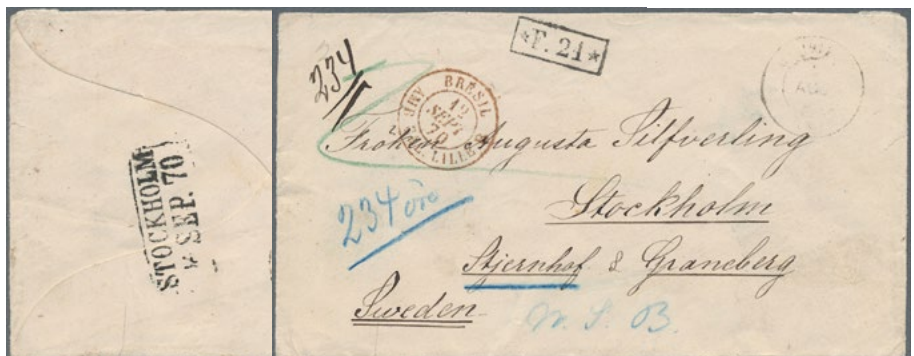 STOCKHOLM
SEP. 70
*F. 24*
234
BRÉSIL
12
SEPT
70
LILLE
AUG
Fröken Augusta Silfverling
Stockholm
234 öre
Stjernhof & Graneberg
Sweden
W. S. B.